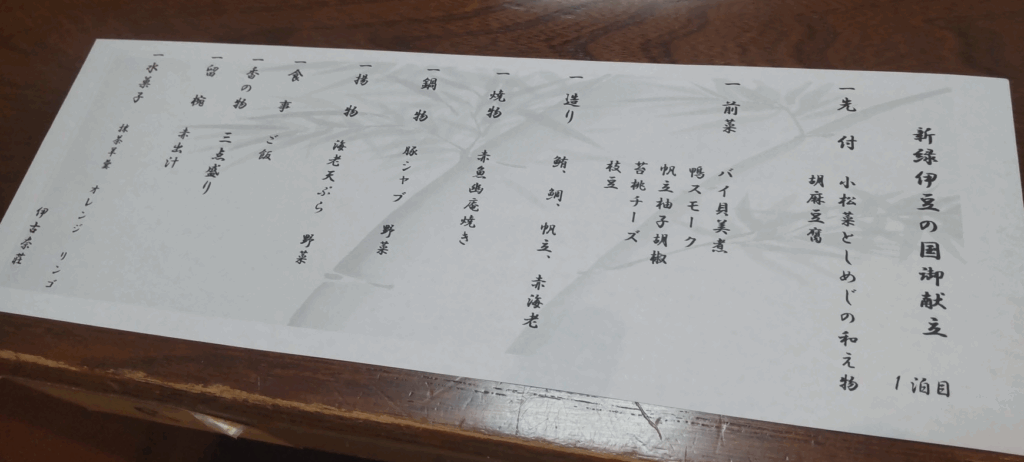 新緑伊豆の国御献立 1泊目
一先付 小松菜としめじの和え物
胡麻豆腐
一前菜
バイ貝美煮
鴨スモーク
帆立柚子胡椒
苔桃チーズ
枝豆
一造り 鮪、鯛、帆立、赤海老
一焼物 赤魚幽庵焼き
一鍋物 豚シャブ 野菜
一揚物 海老天ぷら 野菜
一食事 ご飯
一香の物 三点盛り
一留椀 赤出汁
一水菓子 抹茶羊羹 オレンジ リンゴ
伊古奈荘